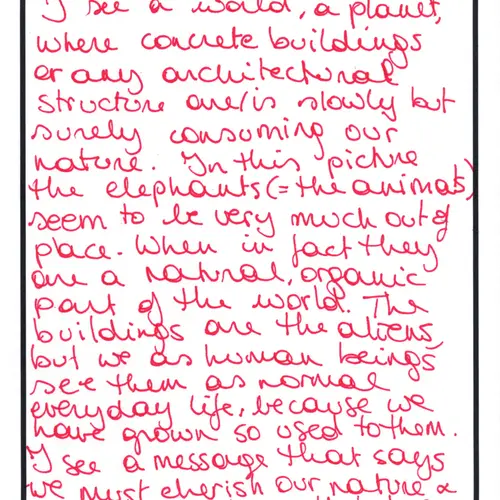 I see a world, a planet,
where concrete buildings
or any architectural
structure are/is slowly but
surely consuming our
nature. In this picture
the elephants (= the animals)
seem to be very much out of
place. When in fact they
are a natural, organic
part of the world. The
buildings are the aliens,
but we as human beings
see them as normal
everyday life, because we
have grown so used to them.
I see a message that says
we must cherish our nature &